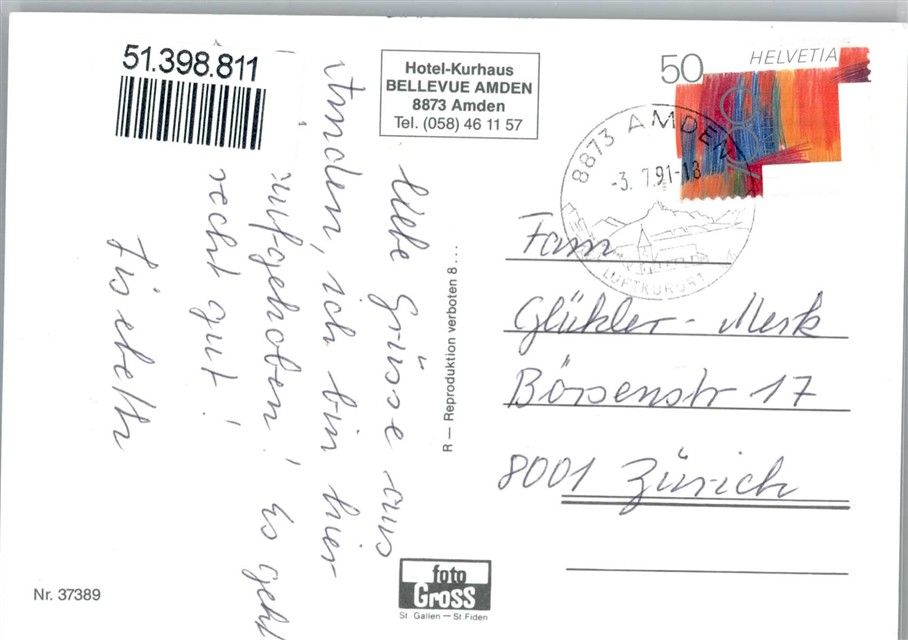 51.398.811
Hotel-Kurhaus
BELLEVUE AMDEN
8873 Amden
Tel. (058) 46 11 57
50
HELVETIA
8873 AMDEN
-3. 7.91-18
LUFTKURORT
liebe Grüsse aus
Amden, ich bin hier
aufgehoben! Es geht
recht gut!
R — Reproduktion verboten 8...
Fam
Glükler - Merk
Börsenstr 17
8001 Zürich
foto
Gross
St. Gallen — St. Fiden
Nr. 37389